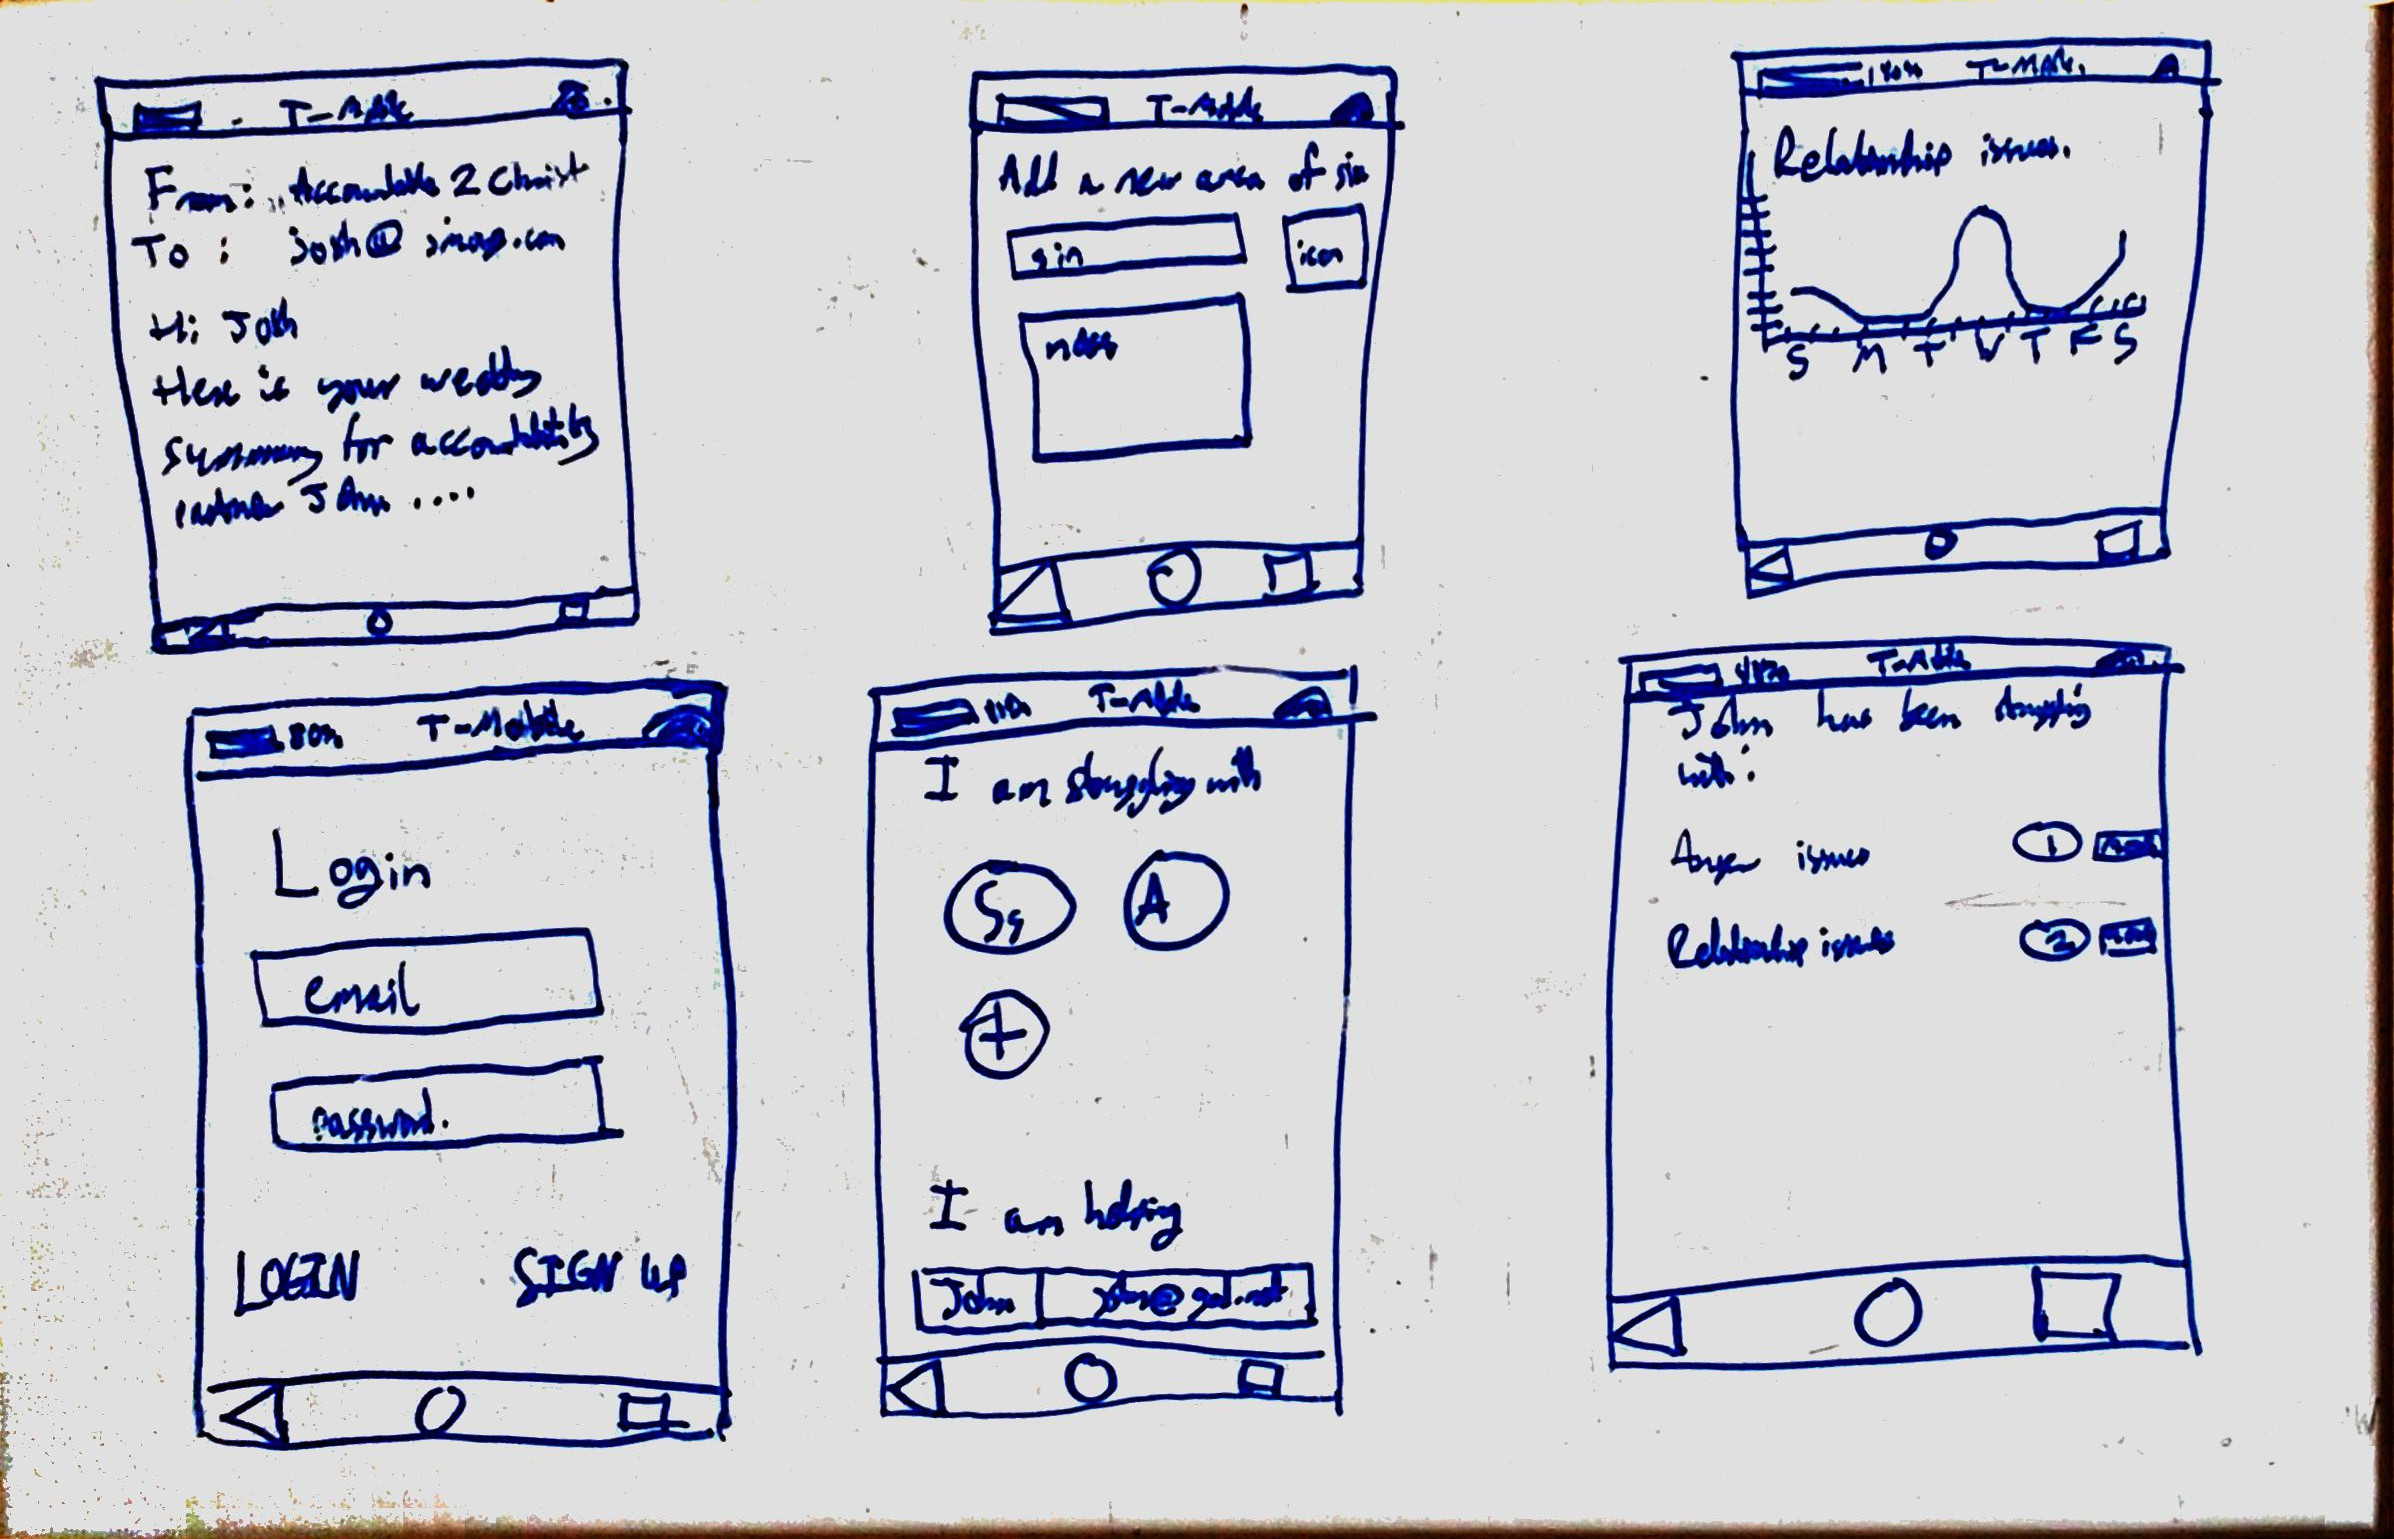 T-Mobile
From: Accountable 2 Christ
To: josh@
Hi Josh
Here is your weekly
summary for accountability
partner John ....
T-Mobile
Add a new area of sin
sin
icon
notes
T-Mobile
Relationship issues.
S M T W T F S
80% T-Mobile
Login
email
password.
LOGIN SIGN UP
T-Mobile
I am struggling with
A
+
I am helping
John
T-Mobile
John has been struggling
with:
Anger issues 1
Relationship issues 2